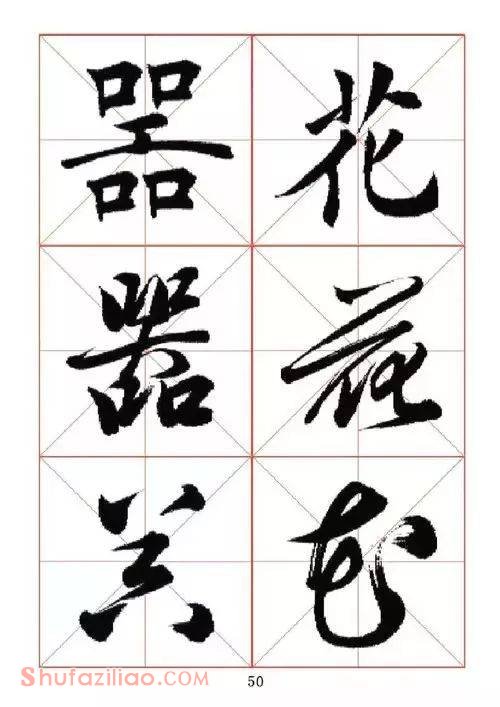 花花花
器器器
Shufaziliao.com
50